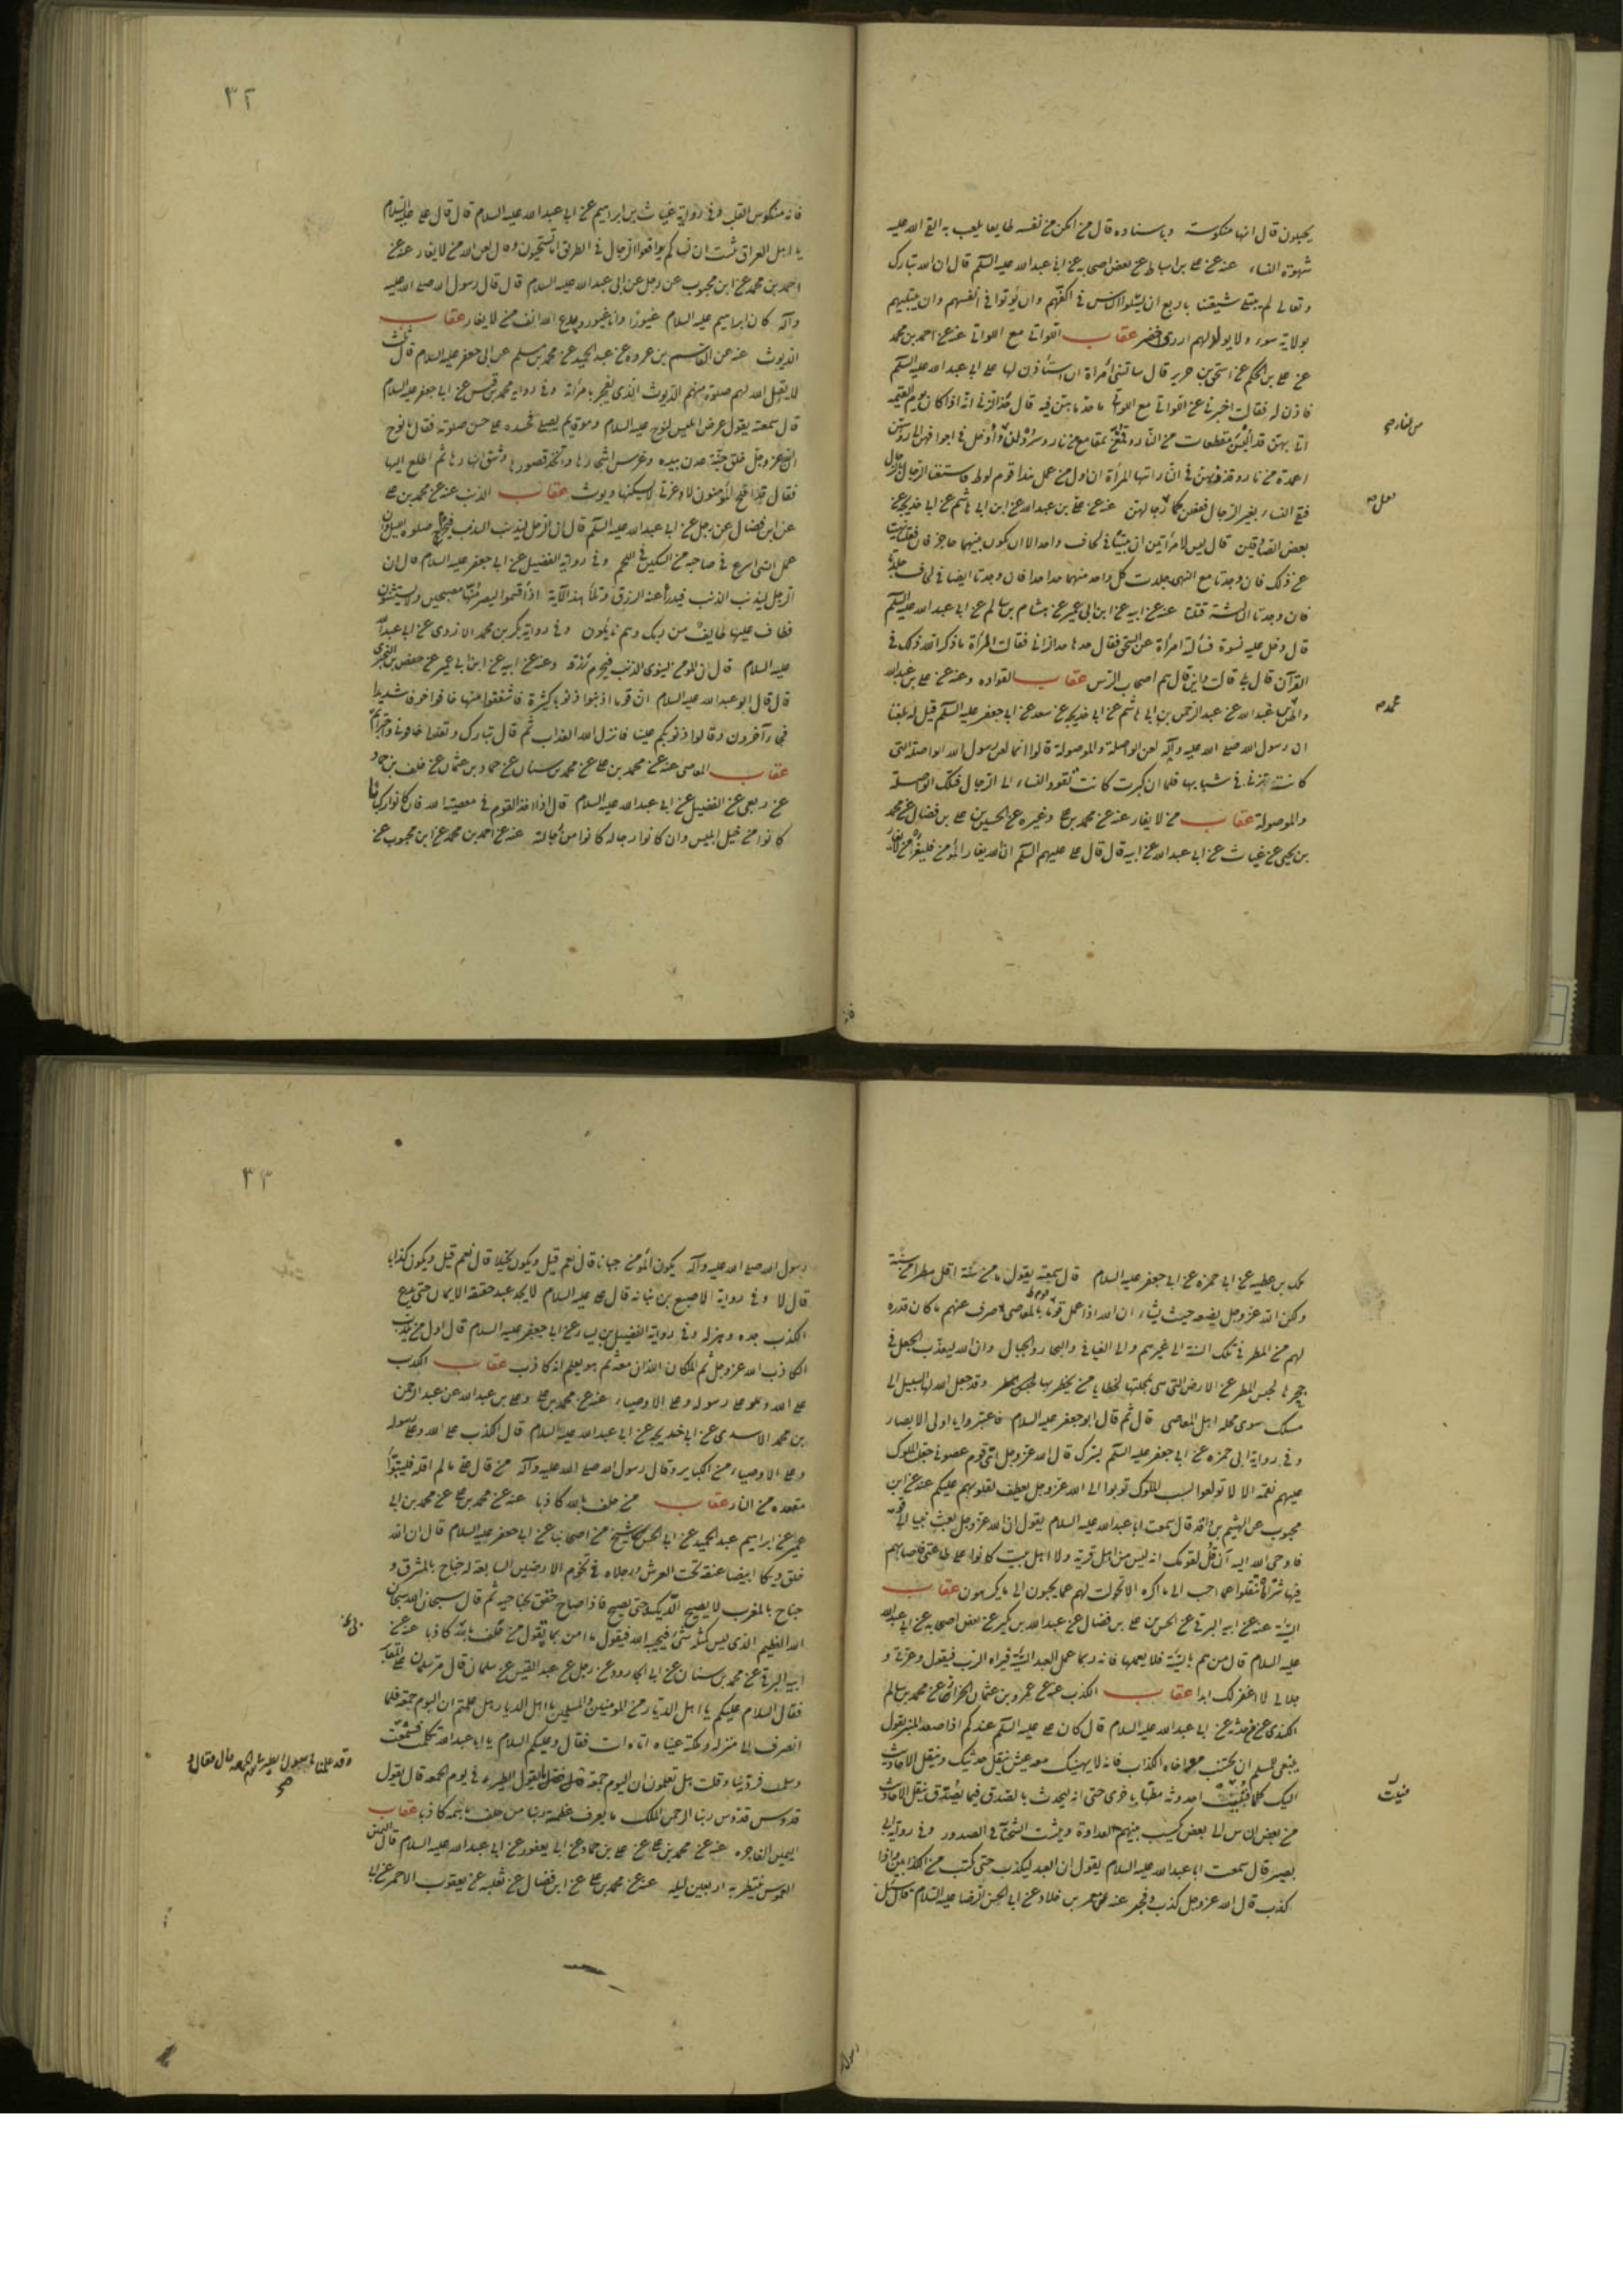 يحبلون قال انها منكوسة وباسناده قال من امكن من نفسه طايعا يلعب به القى الله عليه
شهوة النساء عنه عن على بن اسباط عن بعض اصحابه عن ابى عبدالله عليه السلم قال ان الله تبارك
وتعالى لم يبتلى شيعتنا باربع ان يسئلوا الناس فى اكفهم وان يؤتوا فى انفسهم وان يبتليهم
بولاية سوء ولا يولد لهم ازرق اخضر عقاب اللواتى مع اللواتى عنه عن احمد بن محمد
عن على بن الحكم عن اسحق بن حرير قال سالتنى امرأة ان استأذن لها على ابى عبدالله عليه السلم
فاذن له فقالت اخبرنى عن اللواتى مع اللواتى ما حدهن فيه قال حد الزنى انه اذا كان يوم القيمة
اتى بهن قد البسن مقطعات من النار وقنعن بمقامع من نار وسرولن وادخل فى اجوافهن الى رؤسهن
من النار صح
اعمدة من نار وقذف بهن فى النار ايتها المرأة ان اول من عمل هذا قوم لوط فاستغنا الرجال بالرجال
فبقى النساء بغير الرجال ففعلن كما رجالهن عنه عن على بن عبدالله عن ابن ابى هاشم عن ابى خديجة عن
فعل صح
بعض الصادقين قال ليس لامرأتين ان يبيتا فى لحاف واحد الا ان يكون بينهما حاجز فان فعلتا نهيت
عن ذلك فان وجدتا مع النهى جلدت كل واحد منهما حدا حدا فان وجدتا ايضا فى لحاف جلدتا
فان وجدتا الثالثة قتلتا عنه عن ابيه عن ابن ابى عمير عن هشام بن سالم عن ابى عبدالله عليه السلم
قال دخل عليه نسوة فسألته امرأة عن السحق فقال حدها حد الزانى فقالت المرأة ما ذكر الله ذلك فى
القرآن قال بلى قالت واين قال هم اصحاب الرس عقاب القوادة وعنه عن على بن عبدالله
محمد صح
وا عبدالله عن عبدالرحمن بن ابى هاشم عن ابى خديجة عن سعد عن ابى جعفر عليه السلم قيل له بلغنا
ان رسول الله صلى الله عليه وآله لعن الواصلة والموصولة قالوا انما لعن رسول الله الواصلة التى
كانت تزنى فى شبابها فلما ان كبرت كانت تقود النساء الى الرجال فتلك الواصلة
والموصولة عقاب من لا يغار عنه عن محمد بن على وغيره عن الحسين بن على بن فضال عن محمد
بن يحيى عن غياث عن ابى عبدالله عن ابيه قال قال على عليهم السلم ان الله يغار للمؤمن فليغر من لا يغار
فانه
٣٢
فانه منكوس القلب وفى رواية غياث بن ابراهيم عن ابى عبدالله عليه السلام قال قال على عليه السلام
يا اهل العراق نبئت ان نساءكم يوافقوا الرجال فى الطريق اما تستحيون وقال لعن الله من لا يغار عنه عن
احمد بن محمد عن ابن محبوب عن رجل عن ابى عبدالله عليه السلام قال قال رسول الله صلى الله عليه
وآله كان ابراهيم عليه السلام غيورا وانا غيور وجدع الله انف من لا يغار عقاب
الديوث عنه عن القاسم بن عروة عن عبدالحميد عن محمد بن مسلم عن ابى جعفر عليه السلام قال ثلث
لا يقبل الله لهم صلوة منهم الديوث الذى يفجر بامرأته وفى رواية محمد بن قيس عن ابى جعفر عليه السلام
قال سمعته يقول عرض ابليس لنوح عليه السلام وهو قايم يصلى فحسده على حسن صلوته فقال يا نوح
ان الله عز وجل خلق جنة عدن بيده وغرس اشجارها واتخذ قصورها وشق انهارها ثم اطلع اليها
فقال قد افلح المؤمنون لا وعزتى لا يسكنها ديوث عقاب الذنب عنه عن محمد بن على
عن ابن فضال عن رجل عن ابى عبدالله عليه السلم قال ان الرجل ليذنب الذنب فيحرم صلوة الليل وان
عمل السئ اسرع فى صاحبه من السكين فى اللحم وفى رواية الفضيل عن ابى جعفر عليه السلام قال ان
الرجل ليذنب الذنب فيدرأ عنه الرزق وتلا هذه الآية اذ اقسموا ليصرمنها مصبحين ولا يستثنون
فطاف عليها طايف من ربك وهم نايمون وفى رواية بكر بن محمد الازدى عن ابى عبدالله
عليه السلام قال ان المؤمن لينوى الذنب فيحرم رزقه وعنه عن ابيه عن ابن ابى عمير عن حفص بن البخترى
قال قال ابو عبدالله عليه السلام ان قوما اذنبوا ذنوبا كثيرة فاشفقوا منها خافوا خوفا شديدا
فجاء آخرون وقالوا ذنوبكم علينا فانزل الله العذاب ثم قال تبارك وتعالى خافونى واجترأتم
عقاب المعاصى عنه عن محمد بن على عن محمد بن سنان عن حماد بن عثمان عن خلف بن حماد
عن ربعى عن الفضيل عن ابى عبدالله عليه السلام قال اذا اخذ القوم فى معصية الله فان كانوا ركبانا
كانوا من خيل ابليس وان كانوا رجالة كانوا من رجالته عنه عن احمد بن محمد عن ابن محبوب عن
ملك بن عطية عن ابى حمزه عن ابى جعفر عليه السلام قال سمعته يقول ما من سنة اقل مطرا من سنة
ولكن الله عز وجل يضعه حيث يشاء ان الله اذا عمل قوما بالمعاصى صرف عنهم ما كان قدره
لهم من المطر فى تلك السنة الى غيرهم والى الفيافى والبحار والجبال وان الله ليعذب الجعل فى
جحرها لحبس المطر عن الارض التى هى بمحلتها لخطايا من بحضرتها وقد جعل الله لها السبيل الى
مسلك سوى محله اهل المعاصى قال ثم قال ابو جعفر عليه السلام فاعتبروا يا اولى الابصار
وفى رواية ابى حمزه عن ابى جعفر عليه السلم قال الله عز وجل اى قوم عصونى جعلت الملوك
عليهم نقمة الا لا تولعوا بسب الملوك توبوا الى الله عز وجل يعطف بقلوبهم عليكم عنه عن ابن
محبوب عن الهيثم بن واقد قال سمعت ابا عبدالله عليه السلام يقول ان الله عز وجل بعث نبيا الى قومه
فاوحى الله اليه ان قل لقومك انه ليس من اهل قرية ولا اهل بيت كانوا على طاعتى فاصابهم
فيها شر فانتقلوا عما احب الى ما اكره الا تحولت لهم عما يحبون الى ما يكرهون عقاب
السيئة عنه عن ابيه البرقى عن الحسن بن على بن فضال عن عبدالله بن بكير عن بعض اصحابه عن ابى عبدالله
عليه السلام قال من هم بالسيئة فلا يعملها فانه ربما عمل العبد السيئة فيراه الرب فيقول وعزتى و
جلالى لا اغفر لك ابدا عقاب الكذب عنه عن عمرو بن عثمان الخزاز عن محمد بن سالم
الكندى عمن حدثه عن ابى عبدالله عليه السلام قال كان على عليه السلم عندكم اذا صعد المنبر يقول
ينبغى للمسلم ان يجتنب مواخاة الكذاب فانه لا يهنيك معه عيش ينقل حديثك وينقل الاحاديث
اليك كلما فنيت احدوثة مطها باخرى حتى انه ليحدث بالصدق فيما يصدق فينقل الاحاديث
فنيت
من بعض الناس الى بعض يكسب بينهم العداوة وينبت الشحناء فى الصدور وفى رواية ابى
بصير قال سمعت ابا عبدالله عليه السلام يقول ان العبد ليكذب حتى يكتب من الكذابين واذا
كذب قال الله عز وجل كذب وفجر عنه عن معمر بن خلاد عن ابى الحسن الرضا عليه السلام قال سئل
رسول
٣٣
رسول الله صلى الله عليه وآله يكون المؤمن جبانا قال نعم قيل ويكون بخيلا قال نعم قيل ويكون كذابا
قال لا وفى رواية الاصبغ بن نباته قال على عليه السلام لا يجد عبد حقيقة الايمان حتى يدع
الكذب جده وهزله وفى رواية الفضيل بن يسار عن ابى جعفر عليه السلام قال اول من يكذب
الكاذب الله عز وجل ثم الملكان اللذان معه ثم هو يعلم انه كاذب عقاب الكذب
على الله وعلى رسوله وعلى الاوصياء عنه عن محمد بن على وعلى بن عبدالله عن عبدالرحمن
بن محمد الاسدى عن ابى خديجة عن ابى عبدالله عليه السلام قال الكذب على الله وعلى رسوله
وعلى الاوصياء من الكباير وقال رسول الله صلى الله عليه وآله من قال على ما لم اقله فليتبوأ
مقعده من النار عقاب من حلف بالله كاذبا عنه عن محمد بن على عن محمد بن ابى
عمير عن ابراهيم عبدالحميد عن ابى الحسن شيخ من اصحابنا عن ابى جعفر عليه السلام قال ان الله
خلق ديكا ابيضا عنقه تحت العرش ورجلاه فى تخوم الارضين السابعة له جناح بالمشرق و
جناح بالمغرب لا يصيح الديك حتى يصيح فاذا صاح خفق بجناحيه ثم قال سبحان الله سبحان
الله العظيم الذى ليس كمثله شئ فيجيبه الله فيقول ما امن بما تقول من حلف بالله كاذبا عنه عن
ابيه البرقى عن محمد بن سنان عن ابى الجارود عن رجل عن عبدالقيس عن سلمان قال مر سلمان على المقابر
فقال السلام عليكم يا اهل الديار من المؤمنين والمسلمين يا اهل الديار هل علمتم ان اليوم جمعة فلما
انصرف الى منزله وملكته عيناه اتاه ات فقال وعليكم السلام يا ابا عبدالله تكلمت فسمعت
وسلمت فرددنا وقلت هل تعلمون ان اليوم جمعة وقد علمنا ما يقول الطير فى يوم الجمعة قال يقول
وقد علمنا ما يقول الطير فى يوم الجمعة قال فقال و صح
قدوس قدوس ربنا الرحمن الملك ما يعرف عظمة ربنا من حلف باسمه كاذبا عقاب
اليمين الفاجرة عنه عن محمد بن على عن على بن حماد عن ابى يعفور عن ابى عبدالله عليه السلام قال اليمين
الغموس ينتظر به اربعين ليله عنه عن محمد بن على عن ابن فضال عن ثعلبه عن يعقوب الاحمر عن ابى